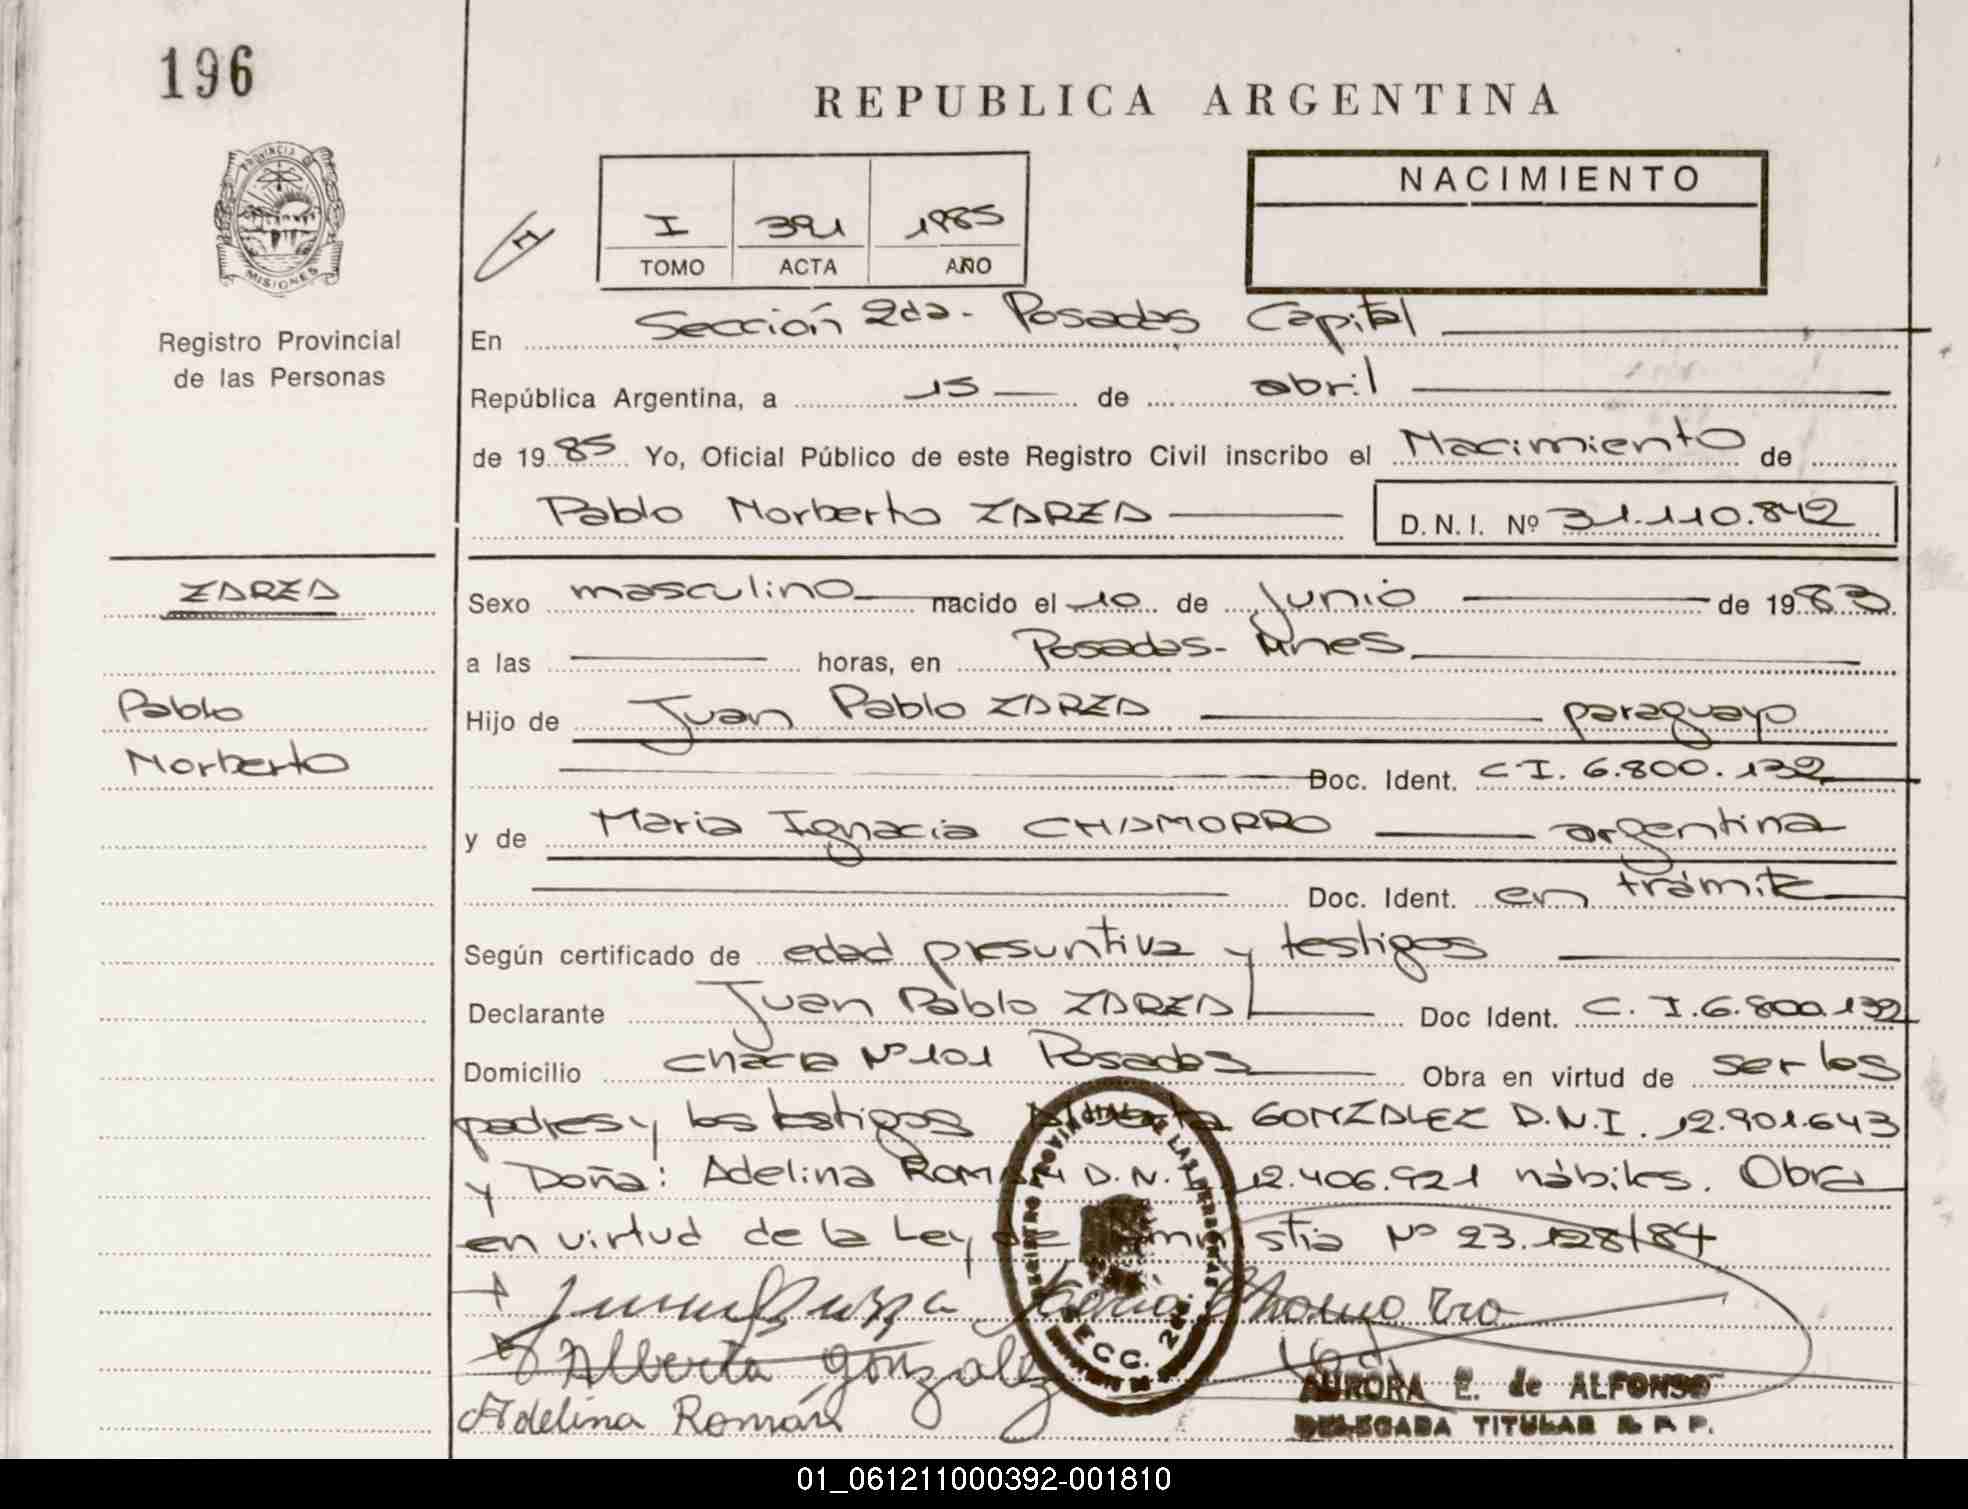 196
REPUBLICA ARGENTINA
PROVINCIA D
MISIONES
Registro Provincial
de las Personas
I 391 1985
TOMO ACTA AÑO
NACIMIENTO
En Sección 2da. Posadas Capital
República Argentina, a 15 de abril
de 1985 Yo, Oficial Público de este Registro Civil inscribo el Nacimiento de
Pablo Norberto ZARZA D.N.I. Nº 31.110.842
ZARZA
Pablo
Norberto
Sexo masculino nacido el 10 de Junio de 1983
a las horas, en Posadas- Mnes
Hijo de Juan Pablo ZARZA paraguayo
Doc. Ident. C I. 6.800.132
y de Maria Ignacia CHAMORRO argentina
Doc. Ident. en trámite
Según certificado de edad presuntiva y testigos
Declarante Juan Pablo ZARZA Doc Ident. C. I. 6.800.132
Domicilio chacra Nº 101 Posadas Obra en virtud de ser los
padres y los testigos Alberta GONZALEZ D.N.I. 12.901.643
y Doña: Adelina ROMAN D.N.I. 12.406.921 hábiles. Obra
en virtud de la Ley de Amnistia Nº 23.128/84
Alberta gonzalez
Adelina Román
SECC. 2da
AURORA E. de ALFONSO
DELEGADA TITULAR R. P. P.
01_061211000392-001810